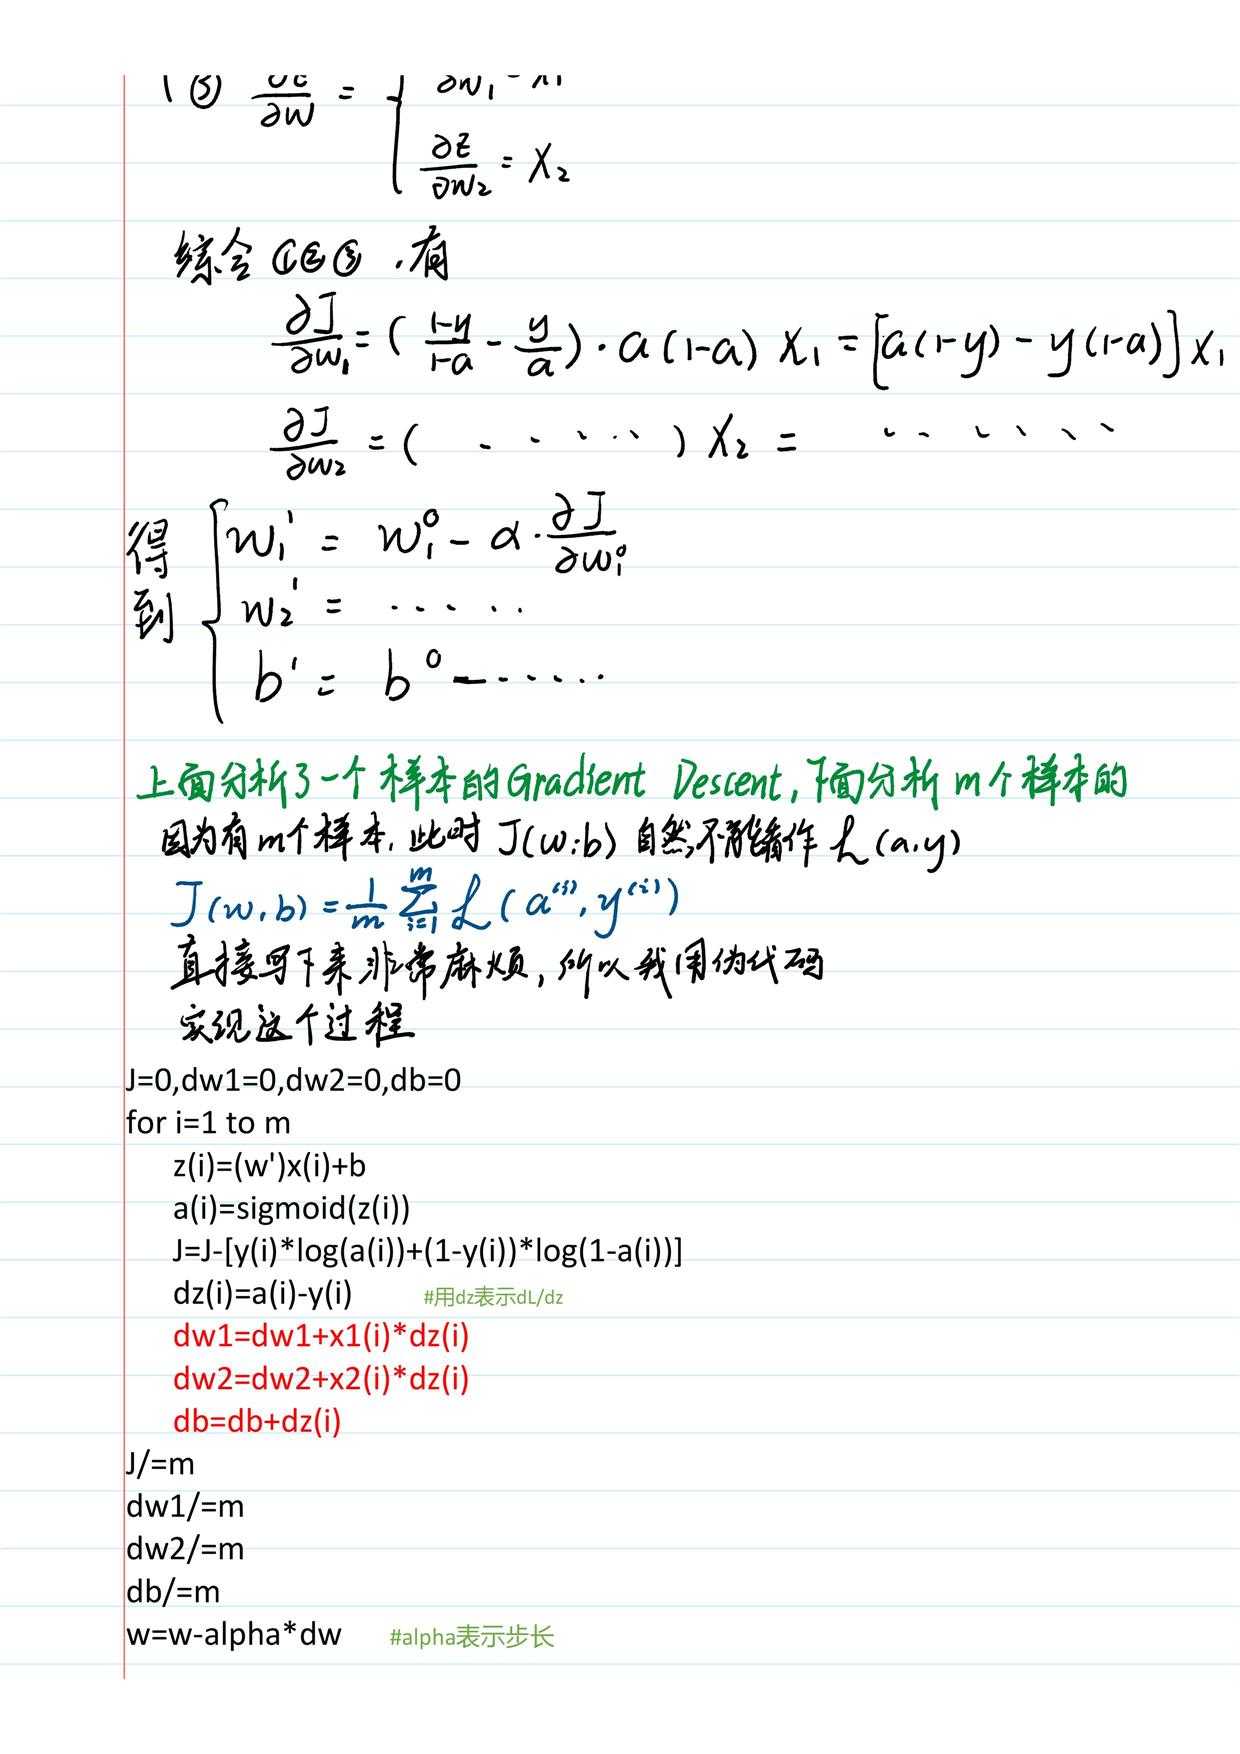 ③ ∂z/∂w = { ∂w₁ = x₁
∂z/∂w₂ = x₂
综合①②③,有
∂J/∂w₁ = ( (1-y)/(1-a) - y/a ) · a(1-a) x₁ = [a(1-y) - y(1-a)] x₁
∂J/∂w₂ = ( · · · · · ) x₂ = · · · · · ·
得到 { w₁¹ = w₁⁰ - α · ∂J/∂w₁⁰
w₂¹ = · · · · ·
b¹ = b⁰ - · · · · ·
上面分析了一个样本的Gradient Descent,下面分析m个样本的
因为有m个样本,此时J(w,b)自然不能看作ℒ(a,y)
J(w,b) = 1/m ∑ᵢ₌₁ᵐ ℒ(a⁽ⁱ⁾, y⁽ⁱ⁾)
直接写下来非常麻烦,所以我用伪代码
实现这个过程
J=0,dw1=0,dw2=0,db=0
for i=1 to m
z(i)=(w')x(i)+b
a(i)=sigmoid(z(i))
J=J-[y(i)*log(a(i))+(1-y(i))*log(1-a(i))]
dz(i)=a(i)-y(i) #用dz表示dL/dz
dw1=dw1+x1(i)*dz(i)
dw2=dw2+x2(i)*dz(i)
db=db+dz(i)
J/=m
dw1/=m
dw2/=m
db/=m
w=w-alpha*dw #alpha表示步长